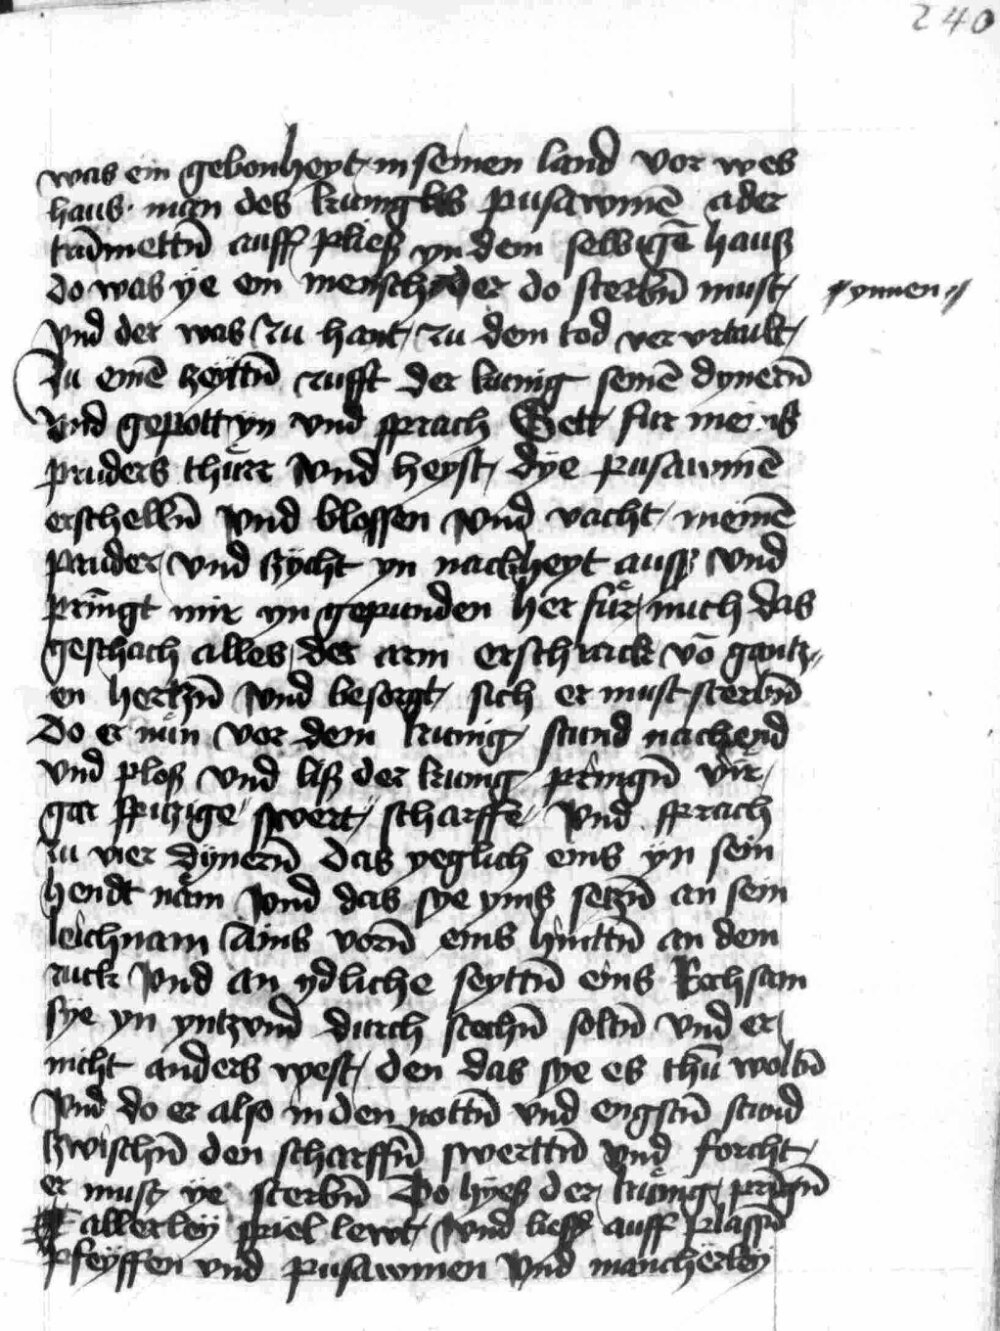 240
was ein gebonheyt in seinen land vor wes
haus man des kunigks pusawnnē ader
trūmettn̄ auff pließ yn dem selbigē hauß
do was ye ein mensch der do sterbn̄ must
ynnen
vnd der was zu hant zu dem tod ver vrtailt
Zu einē zeyttn̄ rufft der kunig seinē dynern̄
vnd gepott yn vnd sprach Gett fur meins
pruders thürr vnd heyst dye pusawnnē
erschelln̄ vnd blossen vnd vacht meinē
pruder vnd zycht yn nackheyt auß vnd
pringt mir yn gepunden her für mich das
geschach alles der arm erschrack vō gantz
en hertzn̄ vnd besorgt sich er must sterbn̄
Do er nun vor dem kunig stund nackend
vnd ploß vnd liß der kunig pringn̄ vir
gar spitzige swert scharffe vnd sprach
zu vier dynern̄ das yeglich eins yn sein
hendt näm vnd das sye yms setzn̄ an sein
leichnam Ains vorn̄ eins hinttn̄ an dem
ruck vnd an ydliche seyttn̄ eins Rechsam
sye yn yntzund durch stechn̄ soltn̄ vnd er
nicht anders west den das sye es thū woltn̄
vnd do er also in den nottn̄ vnd engstn̄ stund
zwischn̄ den scharffn̄ swerttn̄ vnd forcht
er must ye sterbn̄ Do hyeß der kunig pringn̄
allerley spiel lewt vnd ließ auff plassn̄
pfeyffen vnd pusawnen vnd mancherley